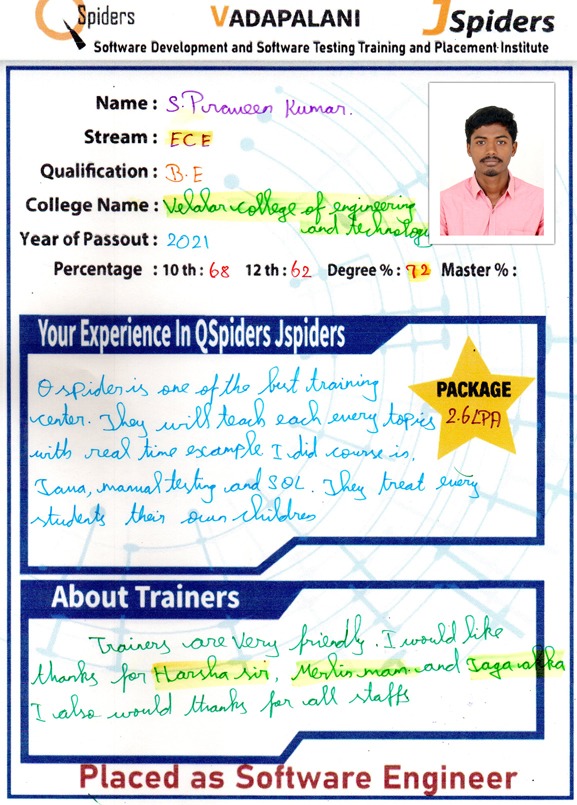 QSpiders VADAPALANI JSpiders
Software Development and Software Testing Training and Placement Institute
Name : S. Piraveen Kumar.
Stream : ECE
Qualification : B.E
College Name : Velalar college of engineering
and technology
Year of Passout : 2021
Percentage : 10 th : 68 12 th : 62 Degree % : 72 Master % :
Your Experience In QSpiders Jspiders
PACKAGE
2.6LPA
Qspider is one of the best training
center. They will teach each every topics
with real time example I did course is,
Java, manual testing and SQL. They treat every
students their own children
About Trainers
Trainers are very friendly. I would like
thanks for Harsha sir, Merlin mam and Jaga akka
I also would thanks for all staffs
Placed as Software Engineer